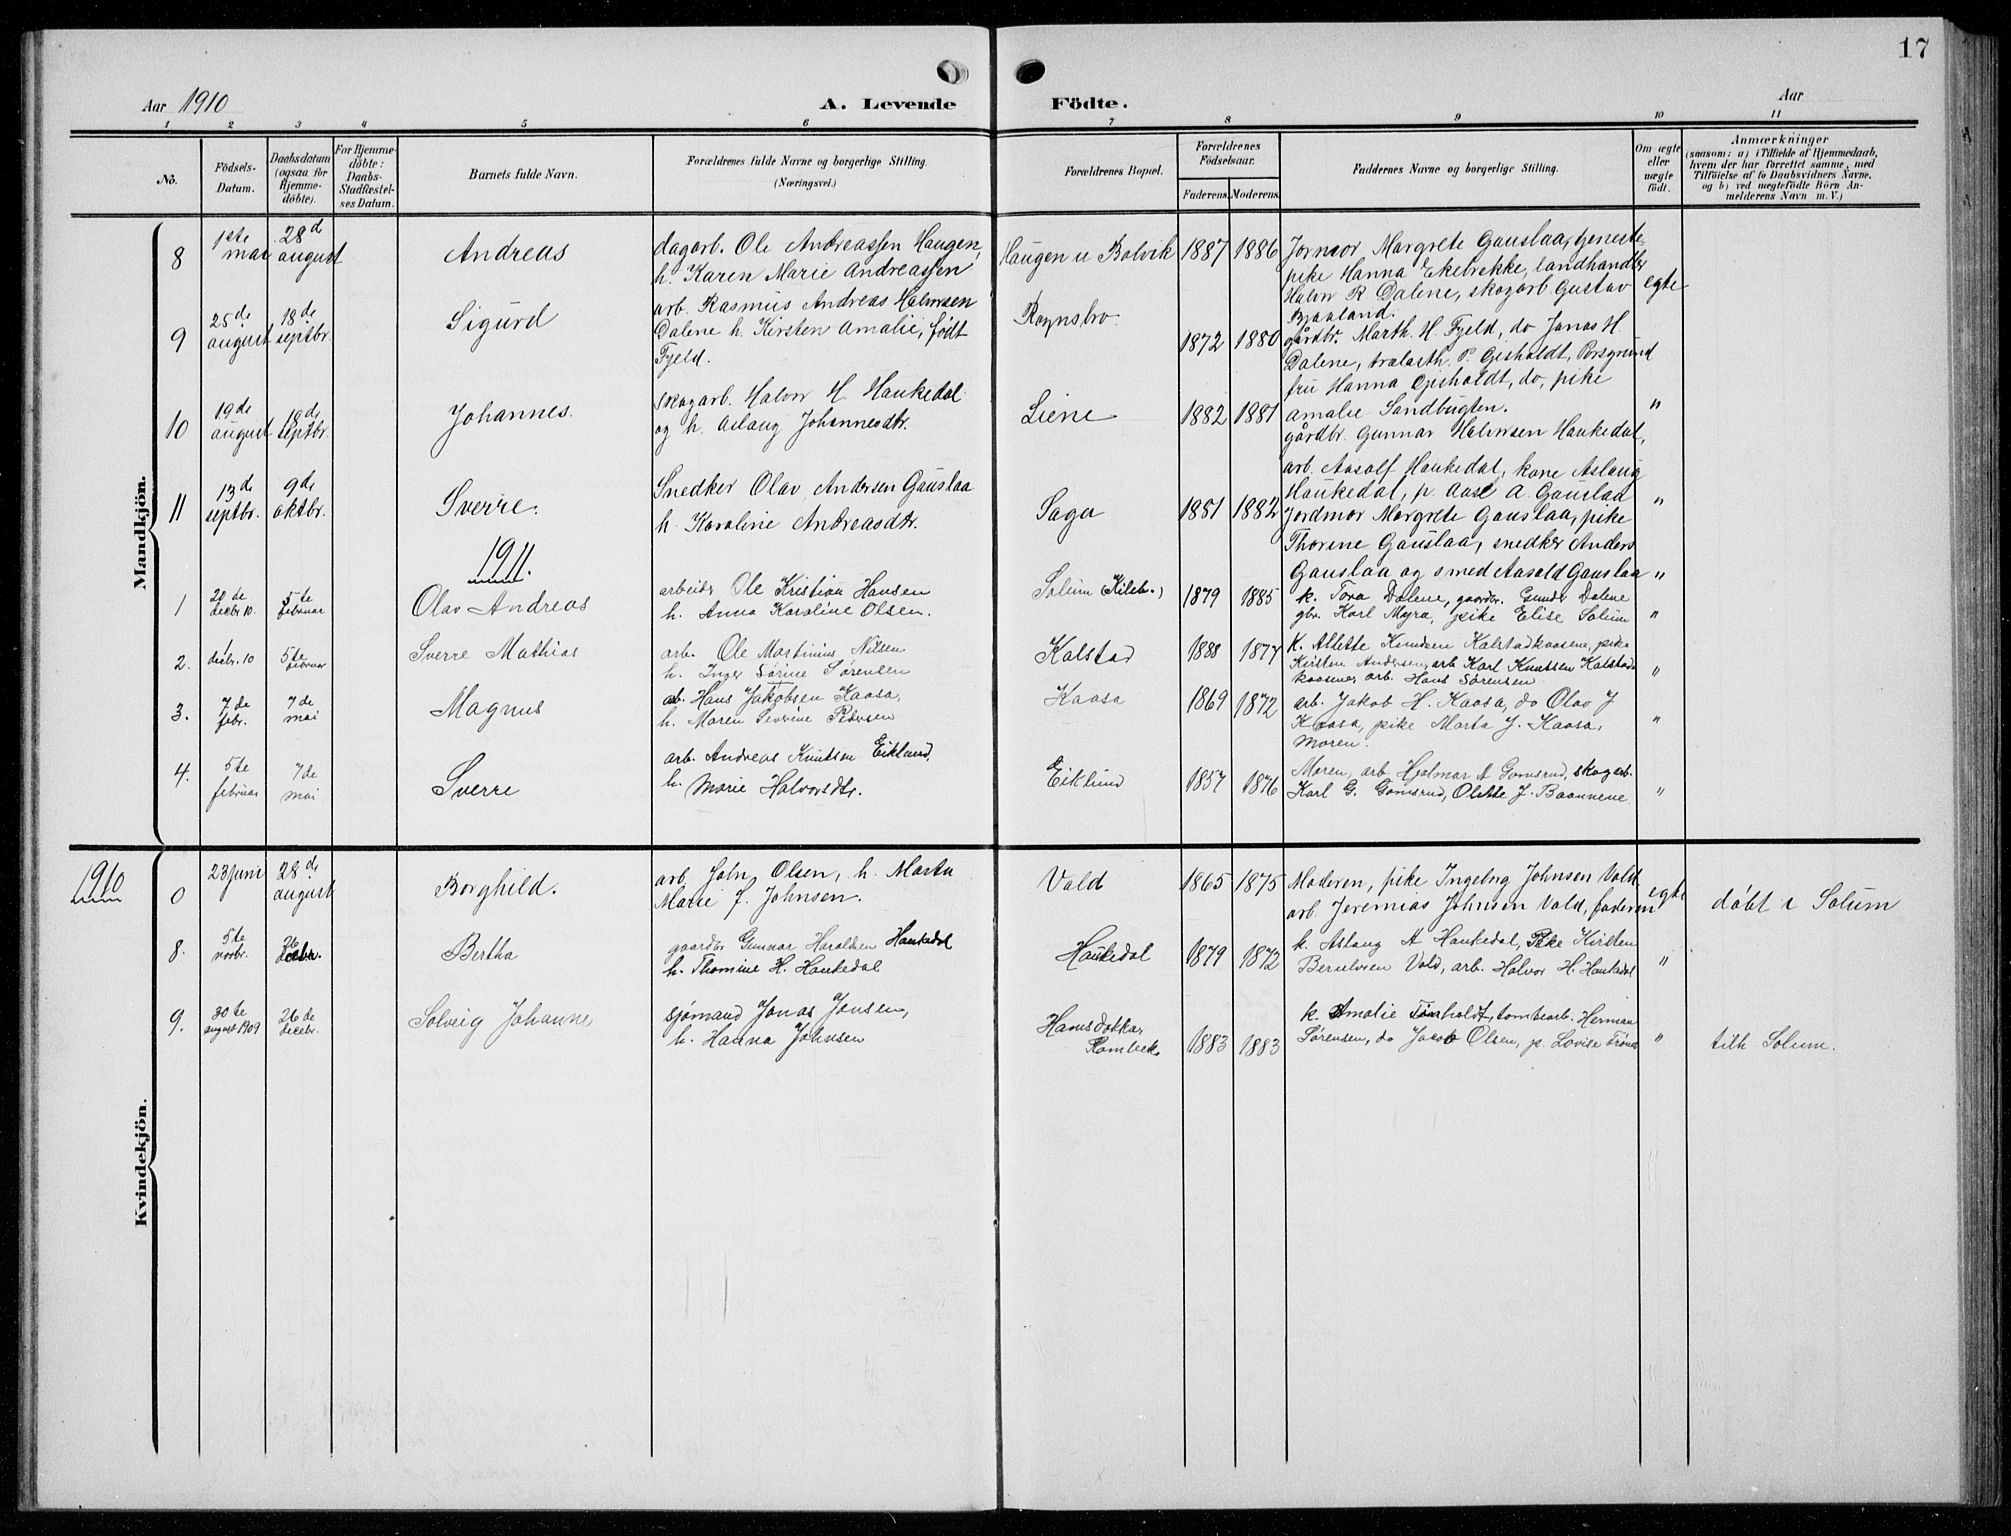 17
Aar 1910
A. Levende Födte.
Aar
1 2 3 4 5 6 7 8 9 10 11
No.
Födsels-Datum.
Daabsdatum (ogsaa for Hjemmedöbte).
For Hjemmedöbte: Daabs-Stadfæstelses Datum.
Barnets fulde Navn.
Forældrenes fulde Navne og borgerlige Stilling. (Næringsvei.)
Forældrenes Bopæl.
Forældrenes Födselsaar.
Faderens. Moderens.
Faddernes Navne og borgerlige Stilling.
Om ægte eller uægte födt.
Anmærkninger
(saasom: a) i Tilfælde af Hjemmedaab, hvem der har forrettet samme, med Tilföielse af to Daabsvidners Navne, og b) ved uægtefödte Börn Anmelderens Navn m. V.)
Mandkjön.
8 1ste mai 28d august Andreas dagarb. Ole Andreassen Haugen, h. Karen Marie Andreassen Haugen u Bolvik 1887 1886 Jormor Margrete Gauslaa, tjenestepike Hanna Ekebrekke, landhandler Halvor R Dalene, skogarb. Gustav Bjaaland. egte
9 25de august 18de septbr. Sigurd arb. Rasmus Andreas Halvorsen Dalene h. Kirsten Amalie, født Fjeld. Rognsbro 1872 1880 gårdbr. Marth. H. Fjeld, do Jonas H. Dalene, P. Gisholdt, Porsgrund fru Hanna Gisholdt, do, pike Amalie Sandbugten. "
10 19de august 18de septbr. Johannes. skogarb. Halvor H Haukedal og h. Aslaug Johannesdtr. Liene 1882 1881 gårdbr. Gunnar Halvorsen Haukedal, arb. Aasolf Haukedal, kone Aslaug Haukedal, p. Aase A. Gauslaa "
11 13de septbr. 9de oktbr. Sverre. Snedker Olav Andersen Gauslaa h. Karoline Andreasdtr. Saga 1881 1882 Jordmor Margrete Gauslaa, pike Thorine Gauslaa, snedker Anders Gauslaa og smed Aasold Gauslaa "
1911.
1 20de decbr 10. 5te februar Olav Andreas arbeider Ole Kristian Hansen h. Anna Karoline Olsen. Solum (Kileb.) 1879 1885 k. Tora Dalene, gaardbr. Gunder Dalene gbr. Karl Myra, pike Elise Solum "
2. 1 decbr. 10 5te februar Sverre Mathias arb. Ole Martinius Nilsen h. Inger Sørine Sørensen Kalstad 1888 1877 K. Allette Kalstadkaasene, pike Kirsten Andersen, arb Karl Knutsen Kalstadkaasene, arb. Hans Sørensen "
3. 7de febr. 7de mai Magnus arb. Hans Jakobsen Kaasa, h. Maren Severine Pedersen Kaasa 1869 1872 arb. Jakob H. Kaasa, do Olav J Kaasa, pike Marta J. Kaasa, Moren. "
4. 5te februar 7de mai Sverre arb. Andreas Knutsen Eiklund, h. Marie Halvorsdtr. Eiklund 1857 1876 Moren, arb. Hjalmar A Gomsrud, skogarb. Karl G. Gomsrud, Olette J. Baannene "
Kvindekjön.
1910
0 23 juni 28de august Borghild. arb. John Olsen, h. Marta Marie f. Johnsen. Vold 1865 1875 Moderen, pike Ingeborg Johnsen Vold, arb. Jeremias Johnsen Vold, faderen egte døbt i Solum
8. 5te novbr. 26 decbr. Bertha gaardbr Gunnar Haraldsen Haukedal h. Thomine H. Haukedal Haukedal 1879 1872 k. Aslaug A Haukedal, Pike Kirsten Berntsen Vold, arb. Halvor H. Haukedal "
9. 30te august 1909 26de decebr. Solveig Johanne sjømand Jonas Jensen, h. Hanna Johnsen Hansdokka, Rombek 1883 1883 k. Amalie Tønholdt, tomtearb. Herman Sørensen, do Jacob Olsen, p. Lovise Frønes " tilh. Solum.